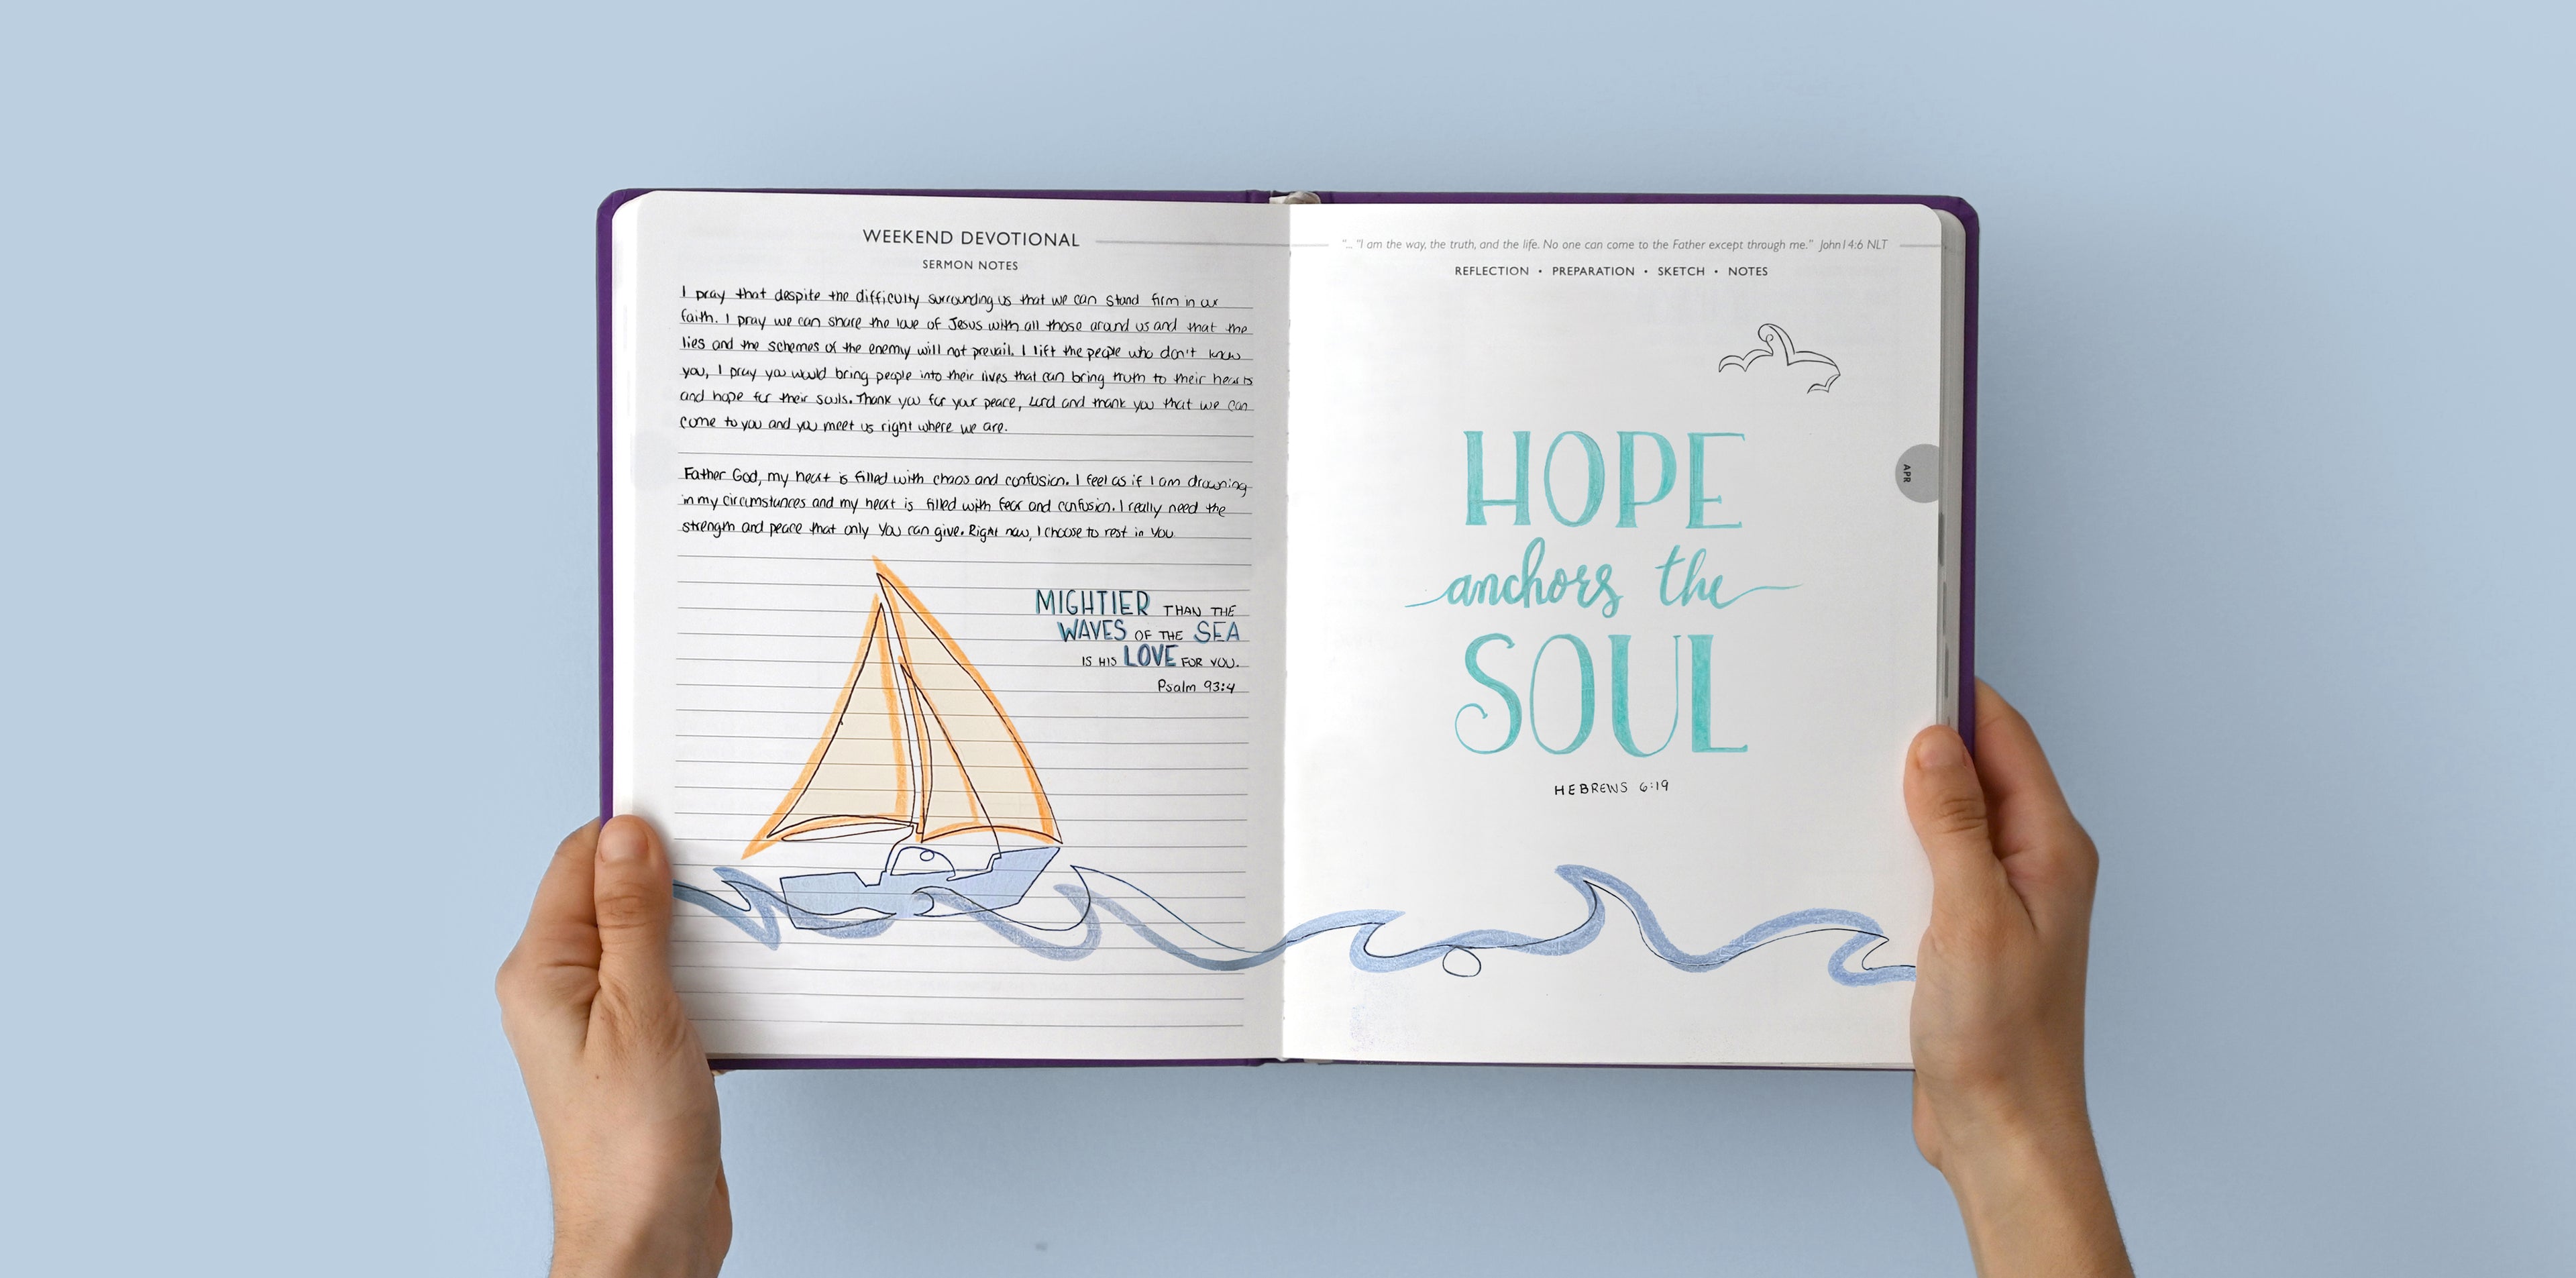 WEEKEND DEVOTIONAL
SERMON NOTES
I pray that despite the difficulty surrounding us that we can stand firm in our
faith. I pray we can share the love of Jesus with all those around us and that the
lies and the schemes of the enemy will not prevail. I lift the people who don't know
you, I pray you would bring people into their lives that can bring truth to their hearts
and hope for their souls. Thank you for your peace, Lord and thank you that we can
come to you and you meet us right where we are.
Father God, my heart is filled with chaos and confusion. I feel as if I am drowning
in my circumstances and my heart is filled with fear and confusion. I really need the
strength and peace that only You can give. Right now, I choose to rest in You
MIGHTIER THAN THE
WAVES OF THE SEA
IS HIS LOVE FOR YOU.
Psalm 93:4
"... "I am the way, the truth, and the life. No one can come to the Father except through me." John 14:6 NLT
REFLECTION • PREPARATION • SKETCH • NOTES
HOPE
anchors the
SOUL
HEBREWS 6:19
APR